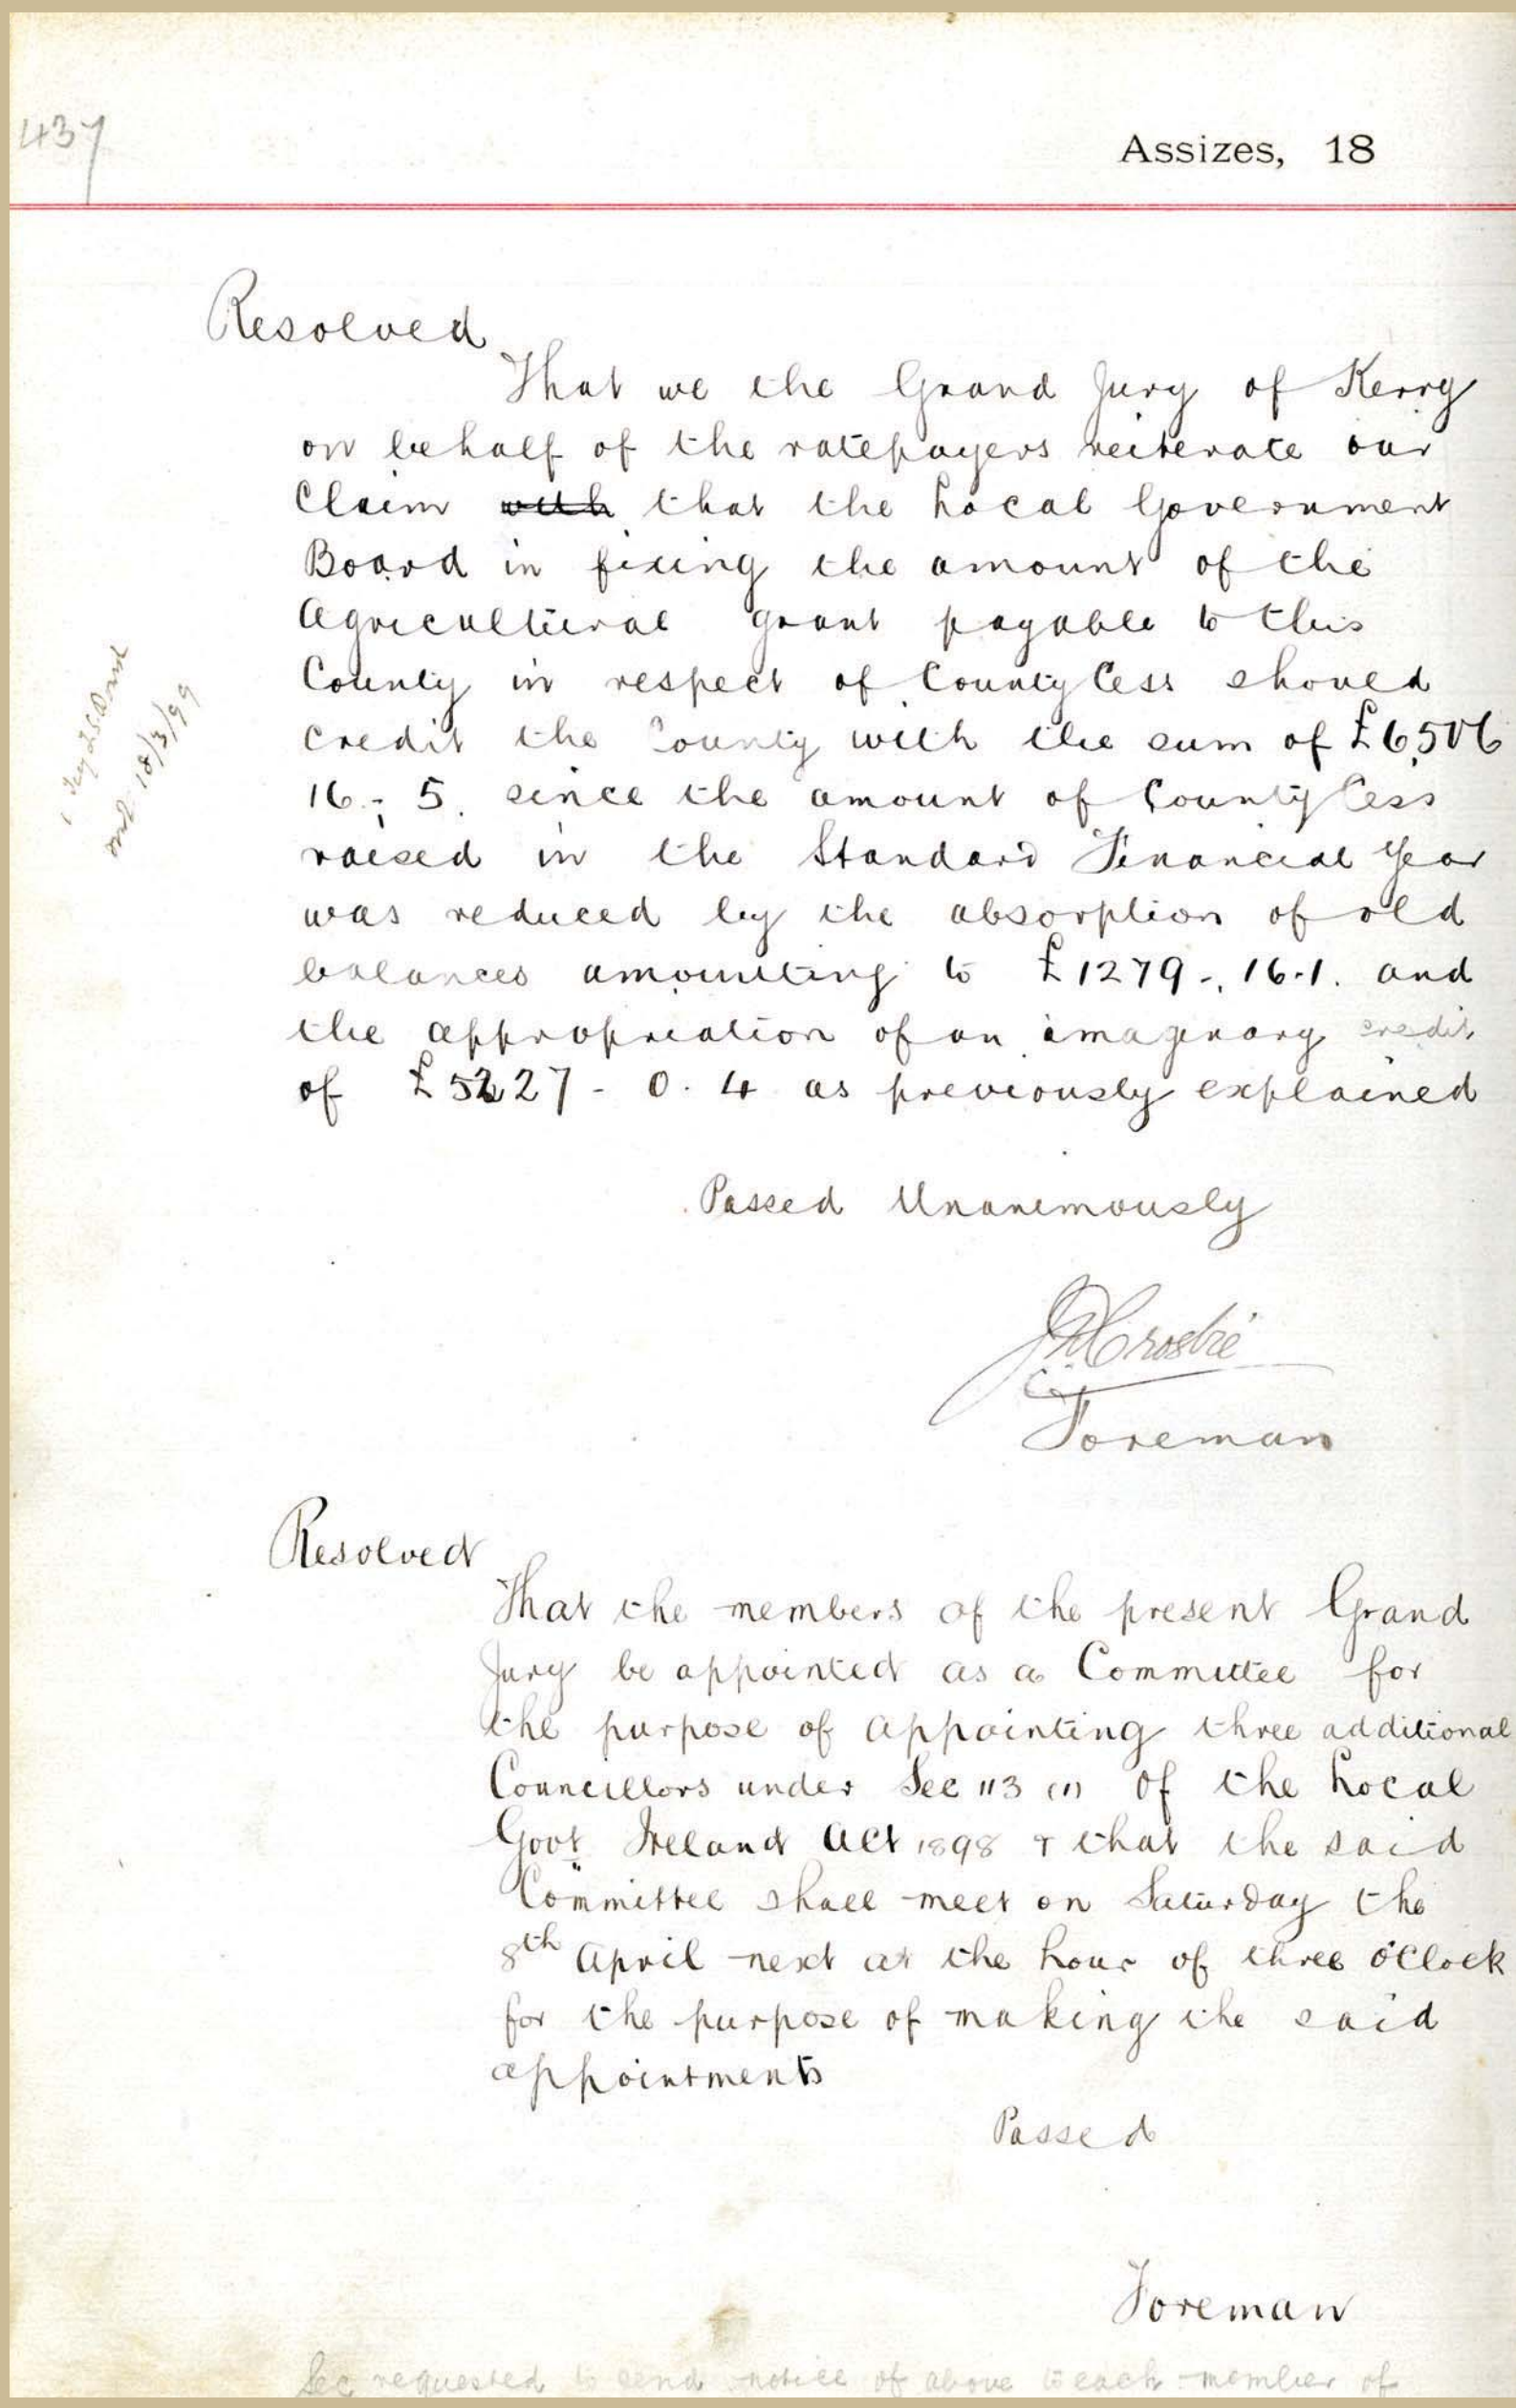 437
Assizes, 18
Resolved
That we the Grand Jury of Kerry
on behalf of the ratepayers reiterate our
Claim with that the Local Government
Board in fixing the amount of the
Agricultural grant payable to this
County in respect of County Cess should
credit the County with the sum of £6,506
16-5. since the amount of County Cess
raised in the Standard Financial Year
was reduced by the absorption of old
balances amounting to £1279-,16-1. and
the appropriation of an imaginary credit
of £5227-0.4 as previously explained
Passed Unanimously
Crosbie
Foreman
18/3/99
Resolved
That the members of the present Grand
Jury be appointed as a Committee for
the purpose of appointing three additional
Councillors under Sec 113 (1) of the Local
Govt Ireland Act 1898 & that the said
Committee shall meet on Saturday the
8th April next at the hour of three o'Clock
for the purpose of making the said
appointments
Passed
Foreman
Sec requested to send notice of above to each member of